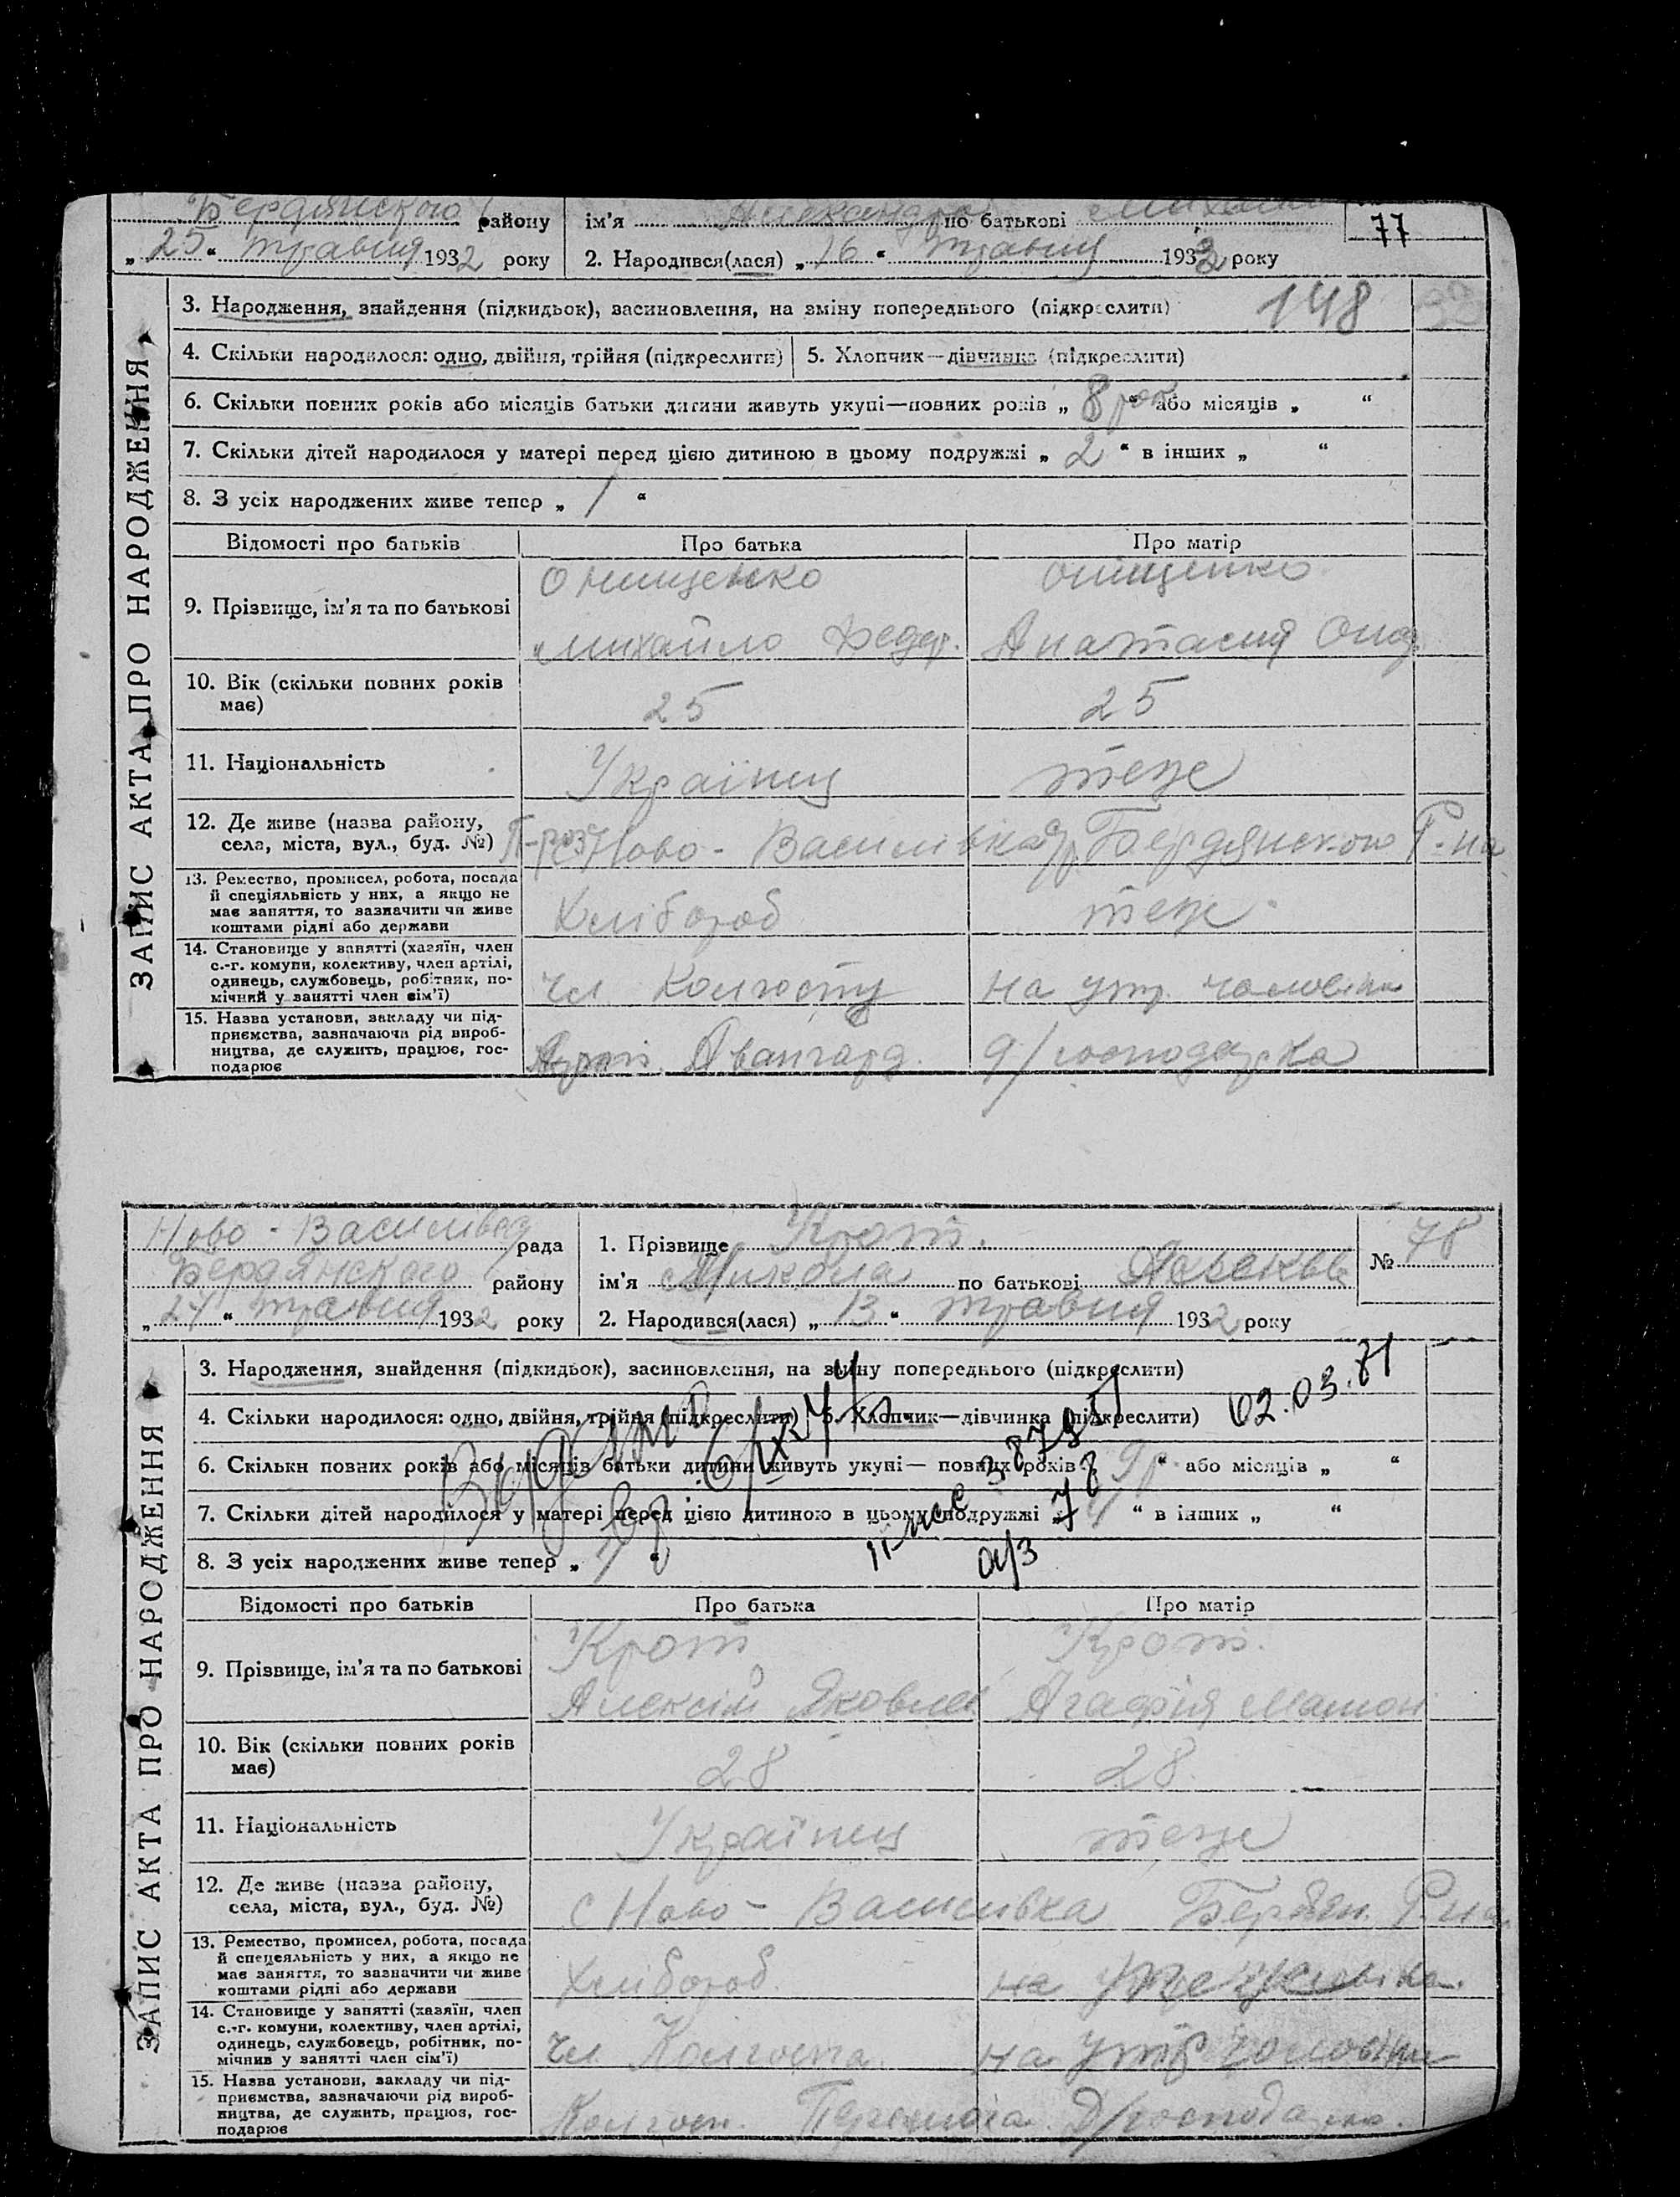 Бердянского району ім'я Александра по батькові 77
„ 25 “ травня 1932 року 2. Народився(лася) „ 16 “ травня 1932 року
3. Народження, знайдення (підкидьок), засиновлення, на зміну попереднього (підкреслити) 148
4. Скільки народилося: одно, двійня, трійня (підкреслити) 5. Хлопчик—дівчинка (підкреслити)
6. Скільки повних років або місяців батьки дитини живуть укупі—повних років „ 8 рок “ або місяців „ “
7. Скільки дітей народилося у матері перед цією дитиною в цьому подружжі „ 2 “ в інших „ “
8. З усіх народжених живе тепер „ 1 “
ЗАПИС АКТА ПРО НАРОДЖЕННЯ
Відомості про батьків Про батька Про матір
9. Прізвище, ім'я та по батькові
Онищенко Онищенко
Михайло Федор. Анатасия
10. Вік (скільки повних років має) 25 25
11. Національність Українц теж
12. Де живе (назва району, села, міста, вул., буд. №) Ново-Василівка Бердянского Р-на
13. Ремество, промисел, робота, посада
й спеціяльність у них, а якщо не
має заняття, то зазначити чи живе
коштами рідні або держави
Хлібороб теж
14. Становище у занятті (хазяїн, член
с.-г. комуни, колективу, член артілі,
одинець, службовець, робітник, по-
мічний у занятті член сім'ї)
Чл Колгоспу на утр. чоловіка
15. Назва установи, закладу чи під-
приємства, зазначаючи рід вироб-
ництва, де служить, працює, гос-
подарює
Авангард. Д/господарка
Ново-Василівка рада 1. Прізвище Крот. № 78
Бердянского району ім'я Микола по батькові
„ 24 “ травня 1932 року 2. Народився(лася) „ 13 “ травня 1932 року
3. Народження, знайдення (підкидьок), засиновлення, на зміну попереднього (підкреслити)
4. Скільки народилося: одно, двійня, трійня (підкреслити) 5. Хлопчик—дівчинка (підкреслити) 02.03.71
6. Скільки повних років або місяців батьки дитини живуть укупі— повних років „ 9 р. “ або місяців „ “
7. Скільки дітей народилося у матері перед цією дитиною в цьому подружжі „ “ в інших „ “
8. З усіх народжених живе тепер „ “
ЗАПИС АКТА ПРО НАРОДЖЕННЯ
Відомості про батьків Про батька Про матір
9. Прізвище, ім'я та по батькові
Крот Крот.
Алексій Яковлев Агафія
10. Вік (скільки повних років має) 28 28
11. Національність Українц теж
12. Де живе (назва району, села, міста, вул., буд. №) с Ново-Василивка Бердян. Р-на
13. Ремество, промисел, робота, посада
й спецеяльність у них, а якщо не
має заняття, то зазначити чи живе
коштами рідні або держави
Хлібороб на
14. Становище у занятті (хазяїн, член
с.-г. комуни, колективу, член артілі,
одинець, службовець, робітник, по-
мічнив у занятті член сім'ї)
Чл Колгоспа на утр чоловіка
15. Назва установи, закладу чи під-
приємства, зазначаючи рід вироб-
ництва, де служить, працює, гос-
подарює
Колгосп. Перемога Д/господарка.